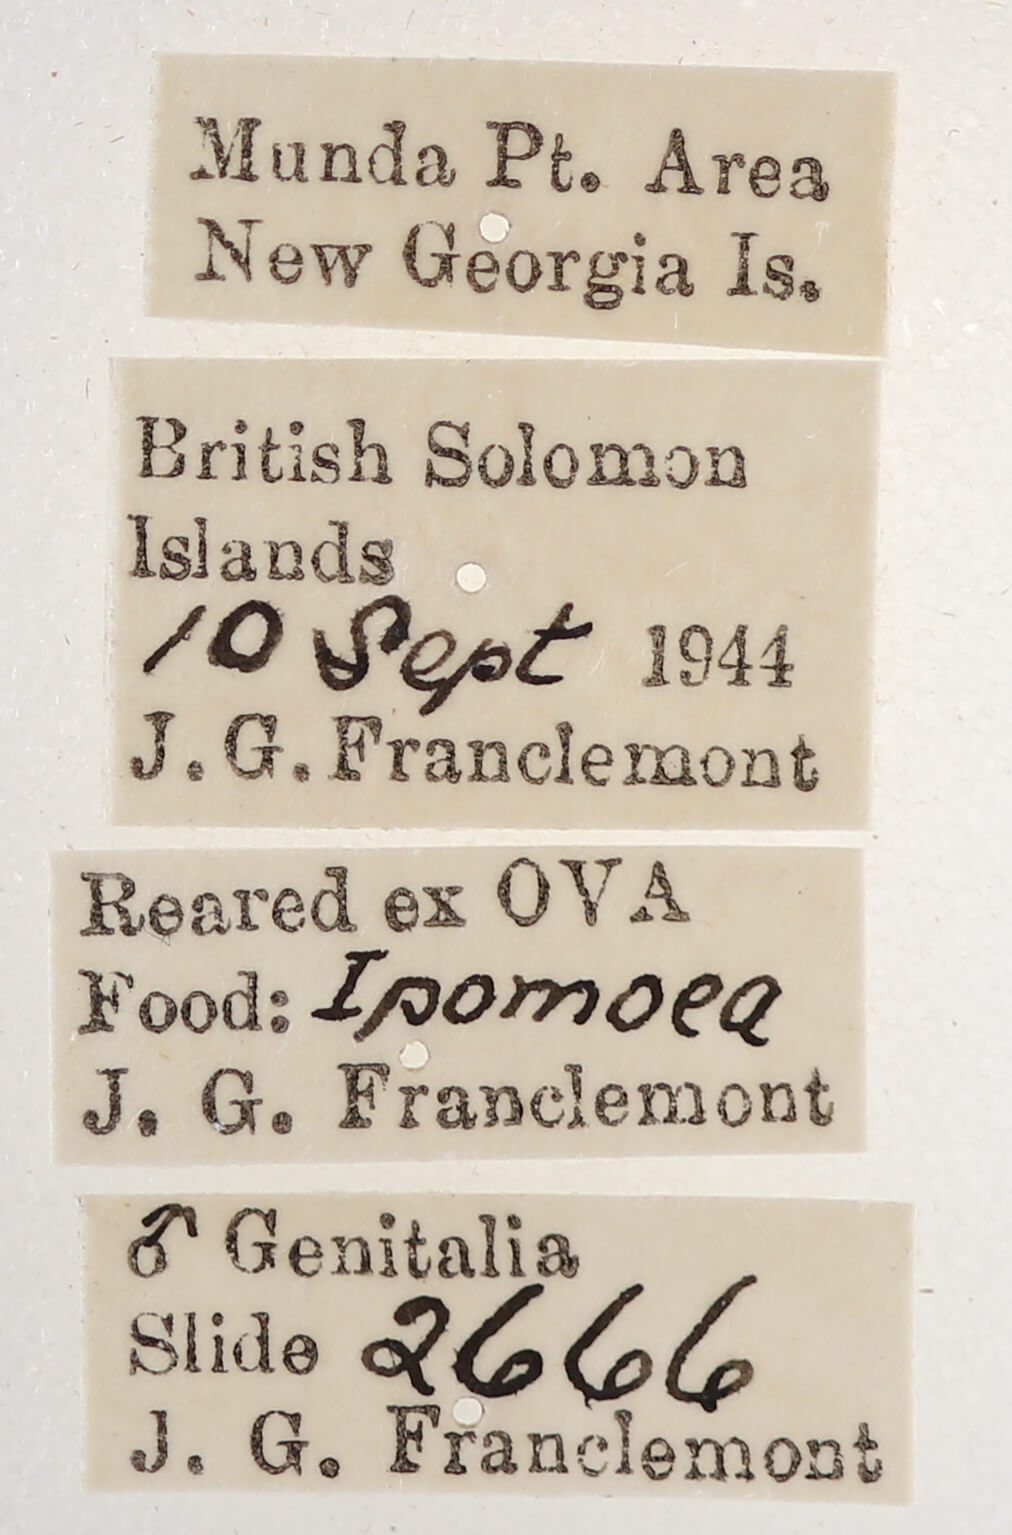 Munda Pt. Area
New Georgia Is.
British Solomon
Islands
10 Sept 1944
J. G. Franclemont
Reared ex OVA
Food: Ipomoea
J. G. Franclemont
♂ Genitalia
Slide 2666
J. G. Franclemont